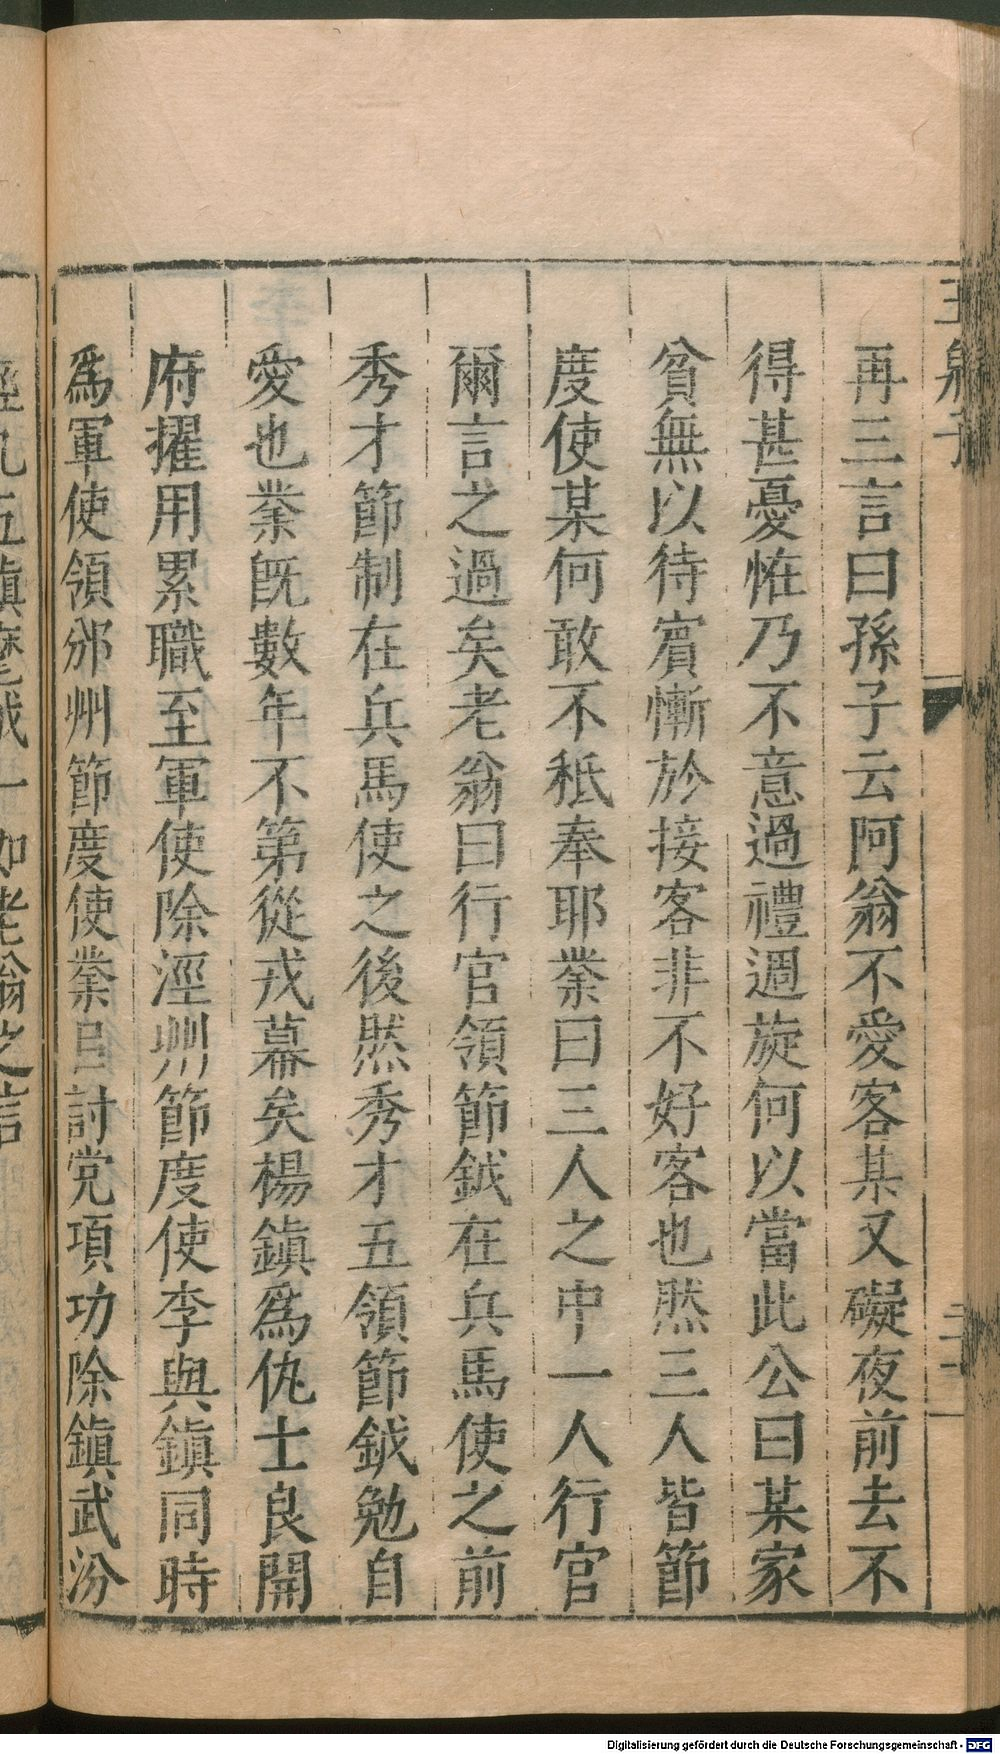 再三言曰孫子云阿翁不愛客某又礙夜前去不
得甚憂恠乃不意過禮週旋何以當此公曰某家
貧無以待賓慚於接客非不好客也然三人皆節
度使某何敢不秪奉耶業曰三人之中一人行官
爾言之過矣老翁曰行官領節鉞在兵馬使之前
秀才節制在兵馬使之後然秀才五領節鉞勉自
愛也業既數年不第從戎幕矣楊鎮爲仇士良開
府擢用累職至軍使除涇州節度使李與鎮同時
爲軍使領邠州節度使業以討党項功除鎮武汾
涇凡五鎮旄鉞一如老翁之言
Digitalisierung gefördert durch die Deutsche Forschungsgemeinschaft - DFG